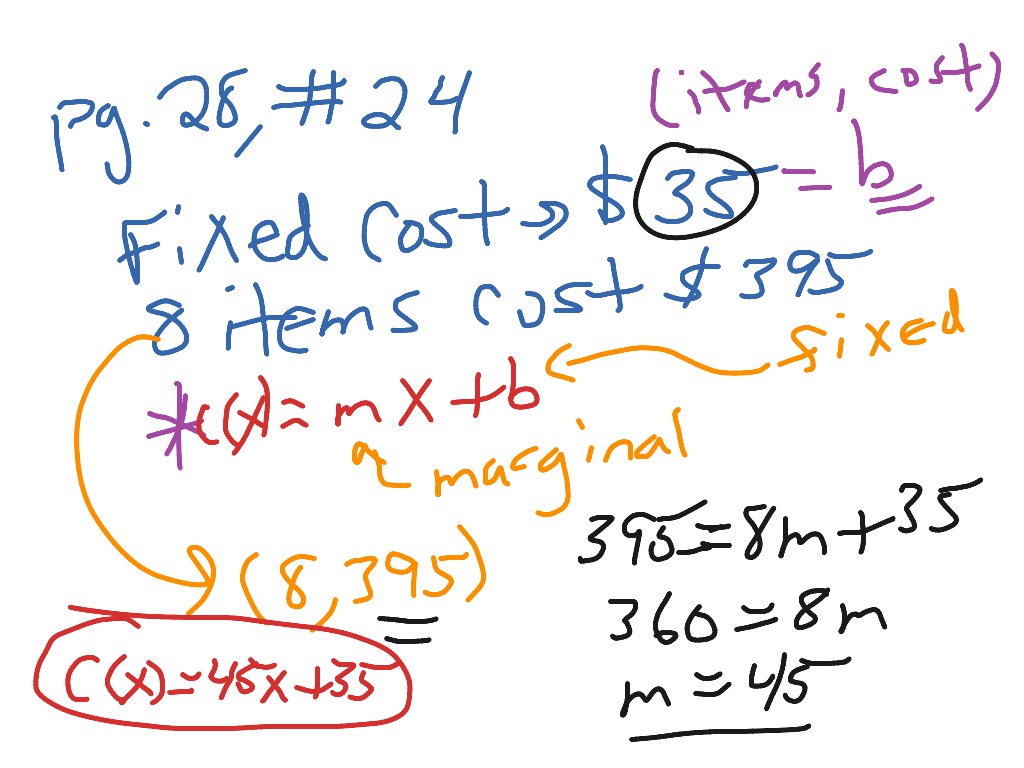 pg. 28, #24
(items, cost)
Fixed Cost → $35 = b
8 items cost $395
fixed
*C(x) = mx + b
marginal
(8, 395)
395 = 8m + 35
360 = 8m
m = 45
C(x) = 45x + 35